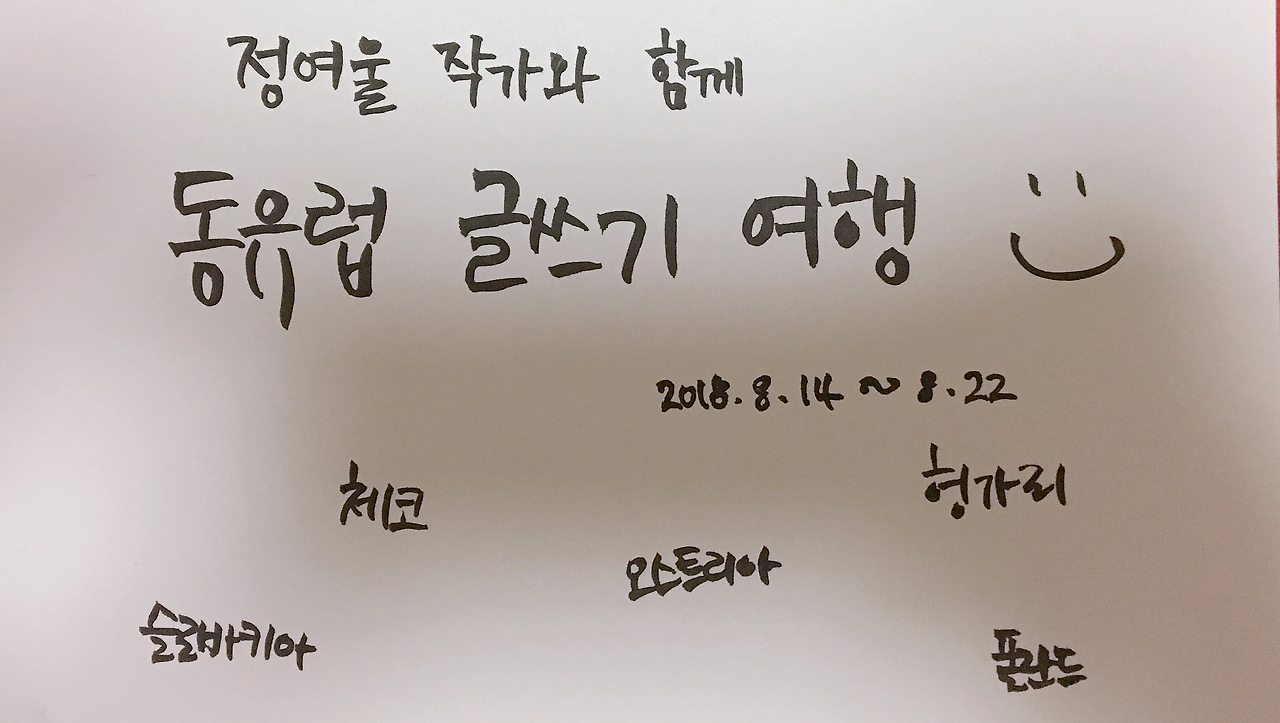 정여울 작가와 함께
동유럽 글쓰기 여행
2018.8.14 ~ 8.22
체코
헝가리
오스트리아
슬로바키아
폴란드